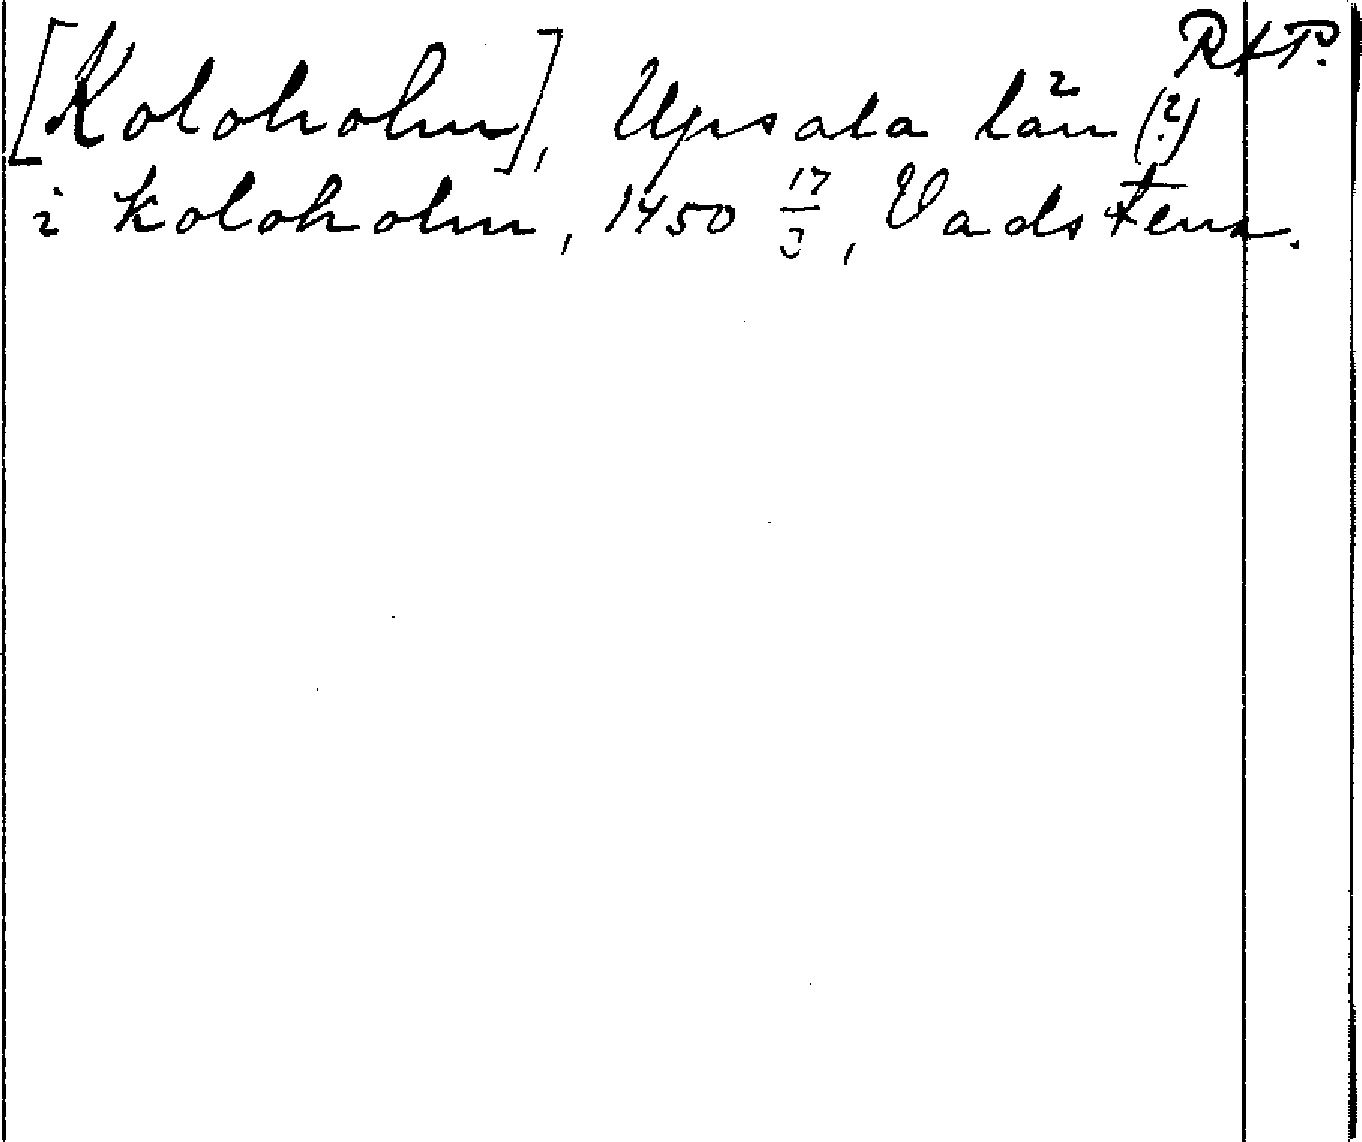 RAP.
[Koloholm], Upsala län (?)
i koloholm, 1450 17/3, Vadstena.